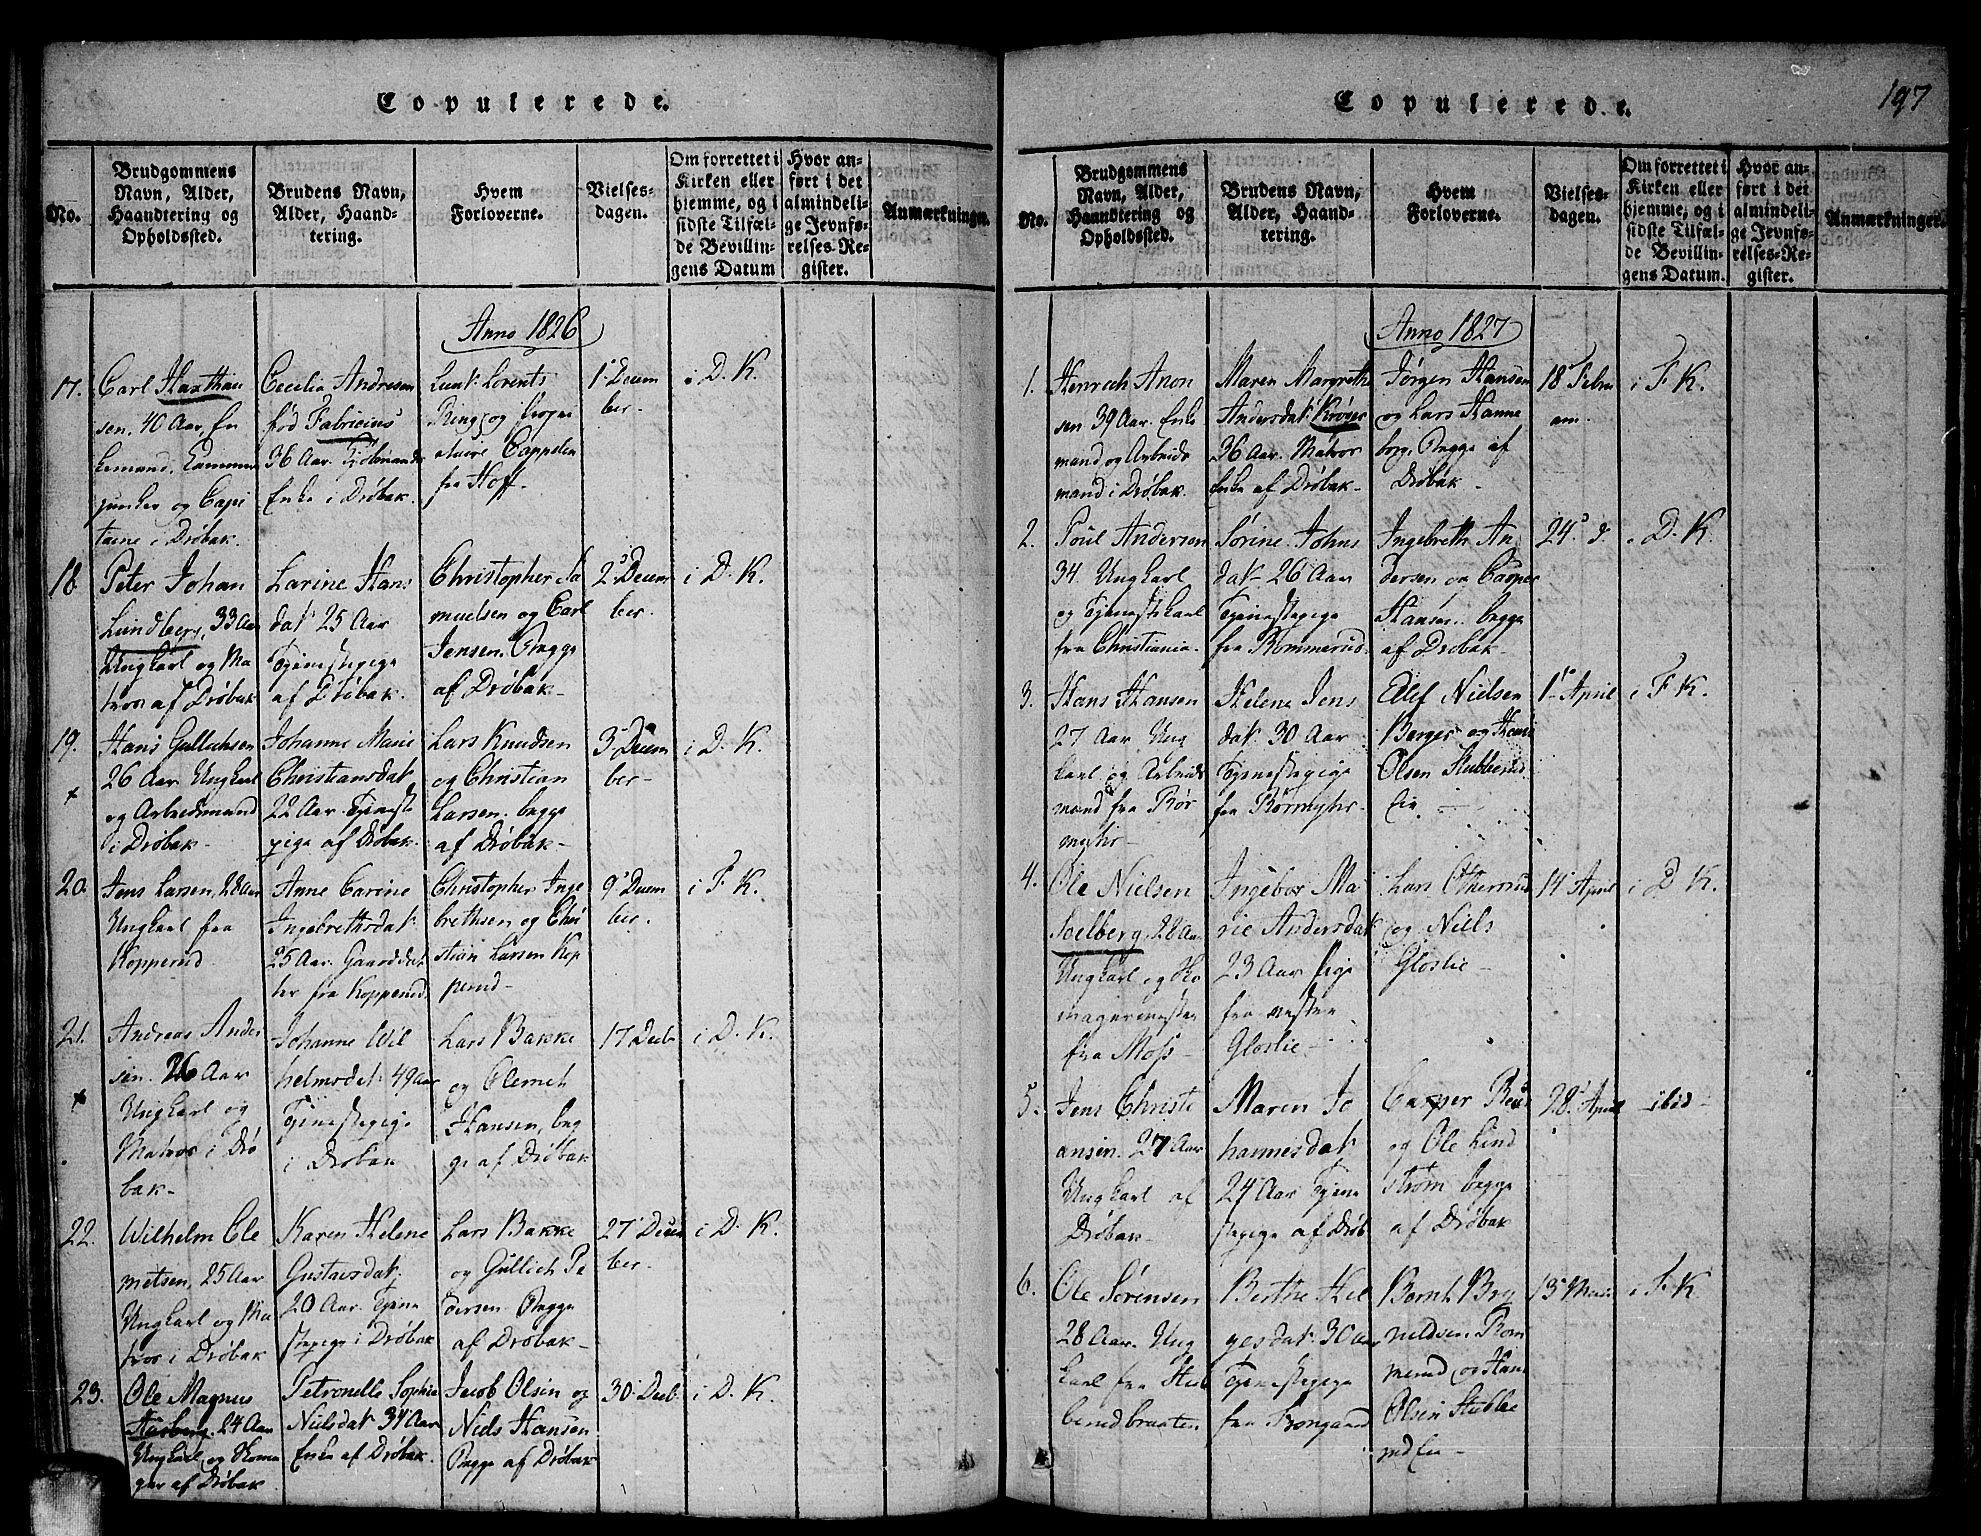 Copulerede.
No.
Brudgommens
Navn, Alder,
Haandtering og
Opholdssted.
Brudens Navn,
Alder, Haand-
tering.
Hvem
Forloverne.
Vielses-
dagen.
Om forrettet i
Kirken eller
hjemme, og i
sidste Tilfæl-
de Bevillin-
gens Datum
Hvor an-
ført i det
almindeli-
ge Jevnfø-
relses-Re-
gister.
Anmærkninger.
Anno 1826
17.
Carl Haxthau
sen, 40 Aar, En
kemand, Kammer
junker og Capi
taine i Drøbak.
Cecilia Andresen
fød Fabricius
36 Aar.
Enke i Drøbak.
Lorents
Ring og
Cappelen
fra Hoff.
1 Decem
ber.
i D. K.
18
Peter Johan
Lundberg, 33 Aar
Ungkarl og Ma
tros af Drøbak
Larine Hans
dat: 25 Aar
Tjenestepige
af Drøbak.
Christopher Sa
muelsen og Carl
Jensen. Begge
af Drøbak-
2 Decem
ber.
i D. K.
19.
Hans Gullichsen
26 Aar Ungkarl
og Arbeidsmand
i Drøbak-
Johanne Marie
Christiansdat
22 Aar Tjeneste
pige af Drøbak.
Lars Knudsen
og Christian
Larsen, begge
af Drøbak-
3 Decem
ber-
i D. K.
20.
Jens Larsen, 28 Aar
Ungkarl fra
Kopperud
Anne Carine
Ingebrethsdat:
25 Aar. Gaarddat
ter fra Kopperud.
Christopher Inge
brethsen og Chri
stian Larsen Kop
perud-
9 Decem
ber.
i F. K.
21.
Andreas Ander
sen. 26 Aar
Ungkarl og
Matros i Drø
bak-
Johanne Wil
helmsdat: 49 Aar
Tjenestepige
i Drøbak
Lars Bakke
og Clemet
Hansen, beg
ge af Drøbak
17 Decb
i D. K.
22.
Wilhelm Cle
metsen, 25 Aar
Ungkarl og Ma
tros i Drøbak
Karen Helene
Gustavsdat:
20 Aar Tjene
stepige i Drøbak
Lars Bakke
og Gullich Pe
dersen Begge
af Drøbak-
27 Decem
ber-
i D. K.
23.
Ole Magnus
24 Aar
Ungkarl og Skoma
ger af Drøbak
Petronelle Sophie
Nielsdat: 34 Aar
Enke af Drøbak.
Jacob Olsen og
Niels Hansen
Begge af Drøbak
30 Decb.
i D. K.
Copulerede.
197
No.
Brudgommens
Navn, Alder,
Haandtering og
Opholdssted.
Brudens Navn,
Alder, Haand-
tering.
Hvem
Forloverne.
Vielses-
dagen.
Om forrettet i
Kirken eller
hjemme, og i
sidste Tilfæl-
de Bevillin-
gens Datum.
Hvor an-
ført i det
almindeli-
ge Jevnfø-
relses-Re-
gister.
Anmærkninger.
Anno 1827
1.
Henrich Aron
sen 39 Aar. Enke
mand og Arbeids
mand i Drøbak.
Maren Margrethe
Andersdat: Krøyer
36 Aar. Matros
Enke af Drøbak-
Jørgen Hansen
og Lars Hanne
borg. Begge af
Drøbak
18 Febru
i F. K.
2.
Poul Andersen
34. Ungkarl
og Tjenestekarl
fra Christiania.
Sørine Johns
dat- 26 Aar
Tjenestepige
fra Rommerud.
Ingebreth An
dersen og Casper
Hansen. begge
af Drøbak-
24 d.
i D. K.
3.
Hans Hansen
27 Aar Ung
karl og Arbeids
mand fra Bør
myhr-
Helene Jens
dat: 30 Aar
Tjenestepige
fra Børmyhr.
Elef Nielsen
Berger og Hans
Olsen Stubberud
Eie
1 April
i F. K.
4.
Ole Nielsen
Solberg, 28 Aar
Ungkarl og Sko
magermester
fra Moss-
Ingebor Ma
rie Andersdat
23 Aar Pige
fra vestre
Gloslie-
Lars Ottersrud
og Niels
Gloslie-
14 April
i D. K.
5.
Jens Christi
ansen. 27 Aar
Ungkarl af
Drøbak-
Maren Jo
hannesdat
24 Aar Tjene
stepige af Drøb
Casper
og Ole Lind
strøm begge
af Drøbak
28 April
ibid-
6.
Ole Sørensen
28 Aar. Ung
karl fra Stub
berudbraaten.
Berthe Hel
gesdat: 30 Aar
Tjenestepige
fra Krongaard
Bernt Bry
nildsen. Rom
merud, og Hans
Olsen Stubbe
rud Eie-
13 Mai
i F. K